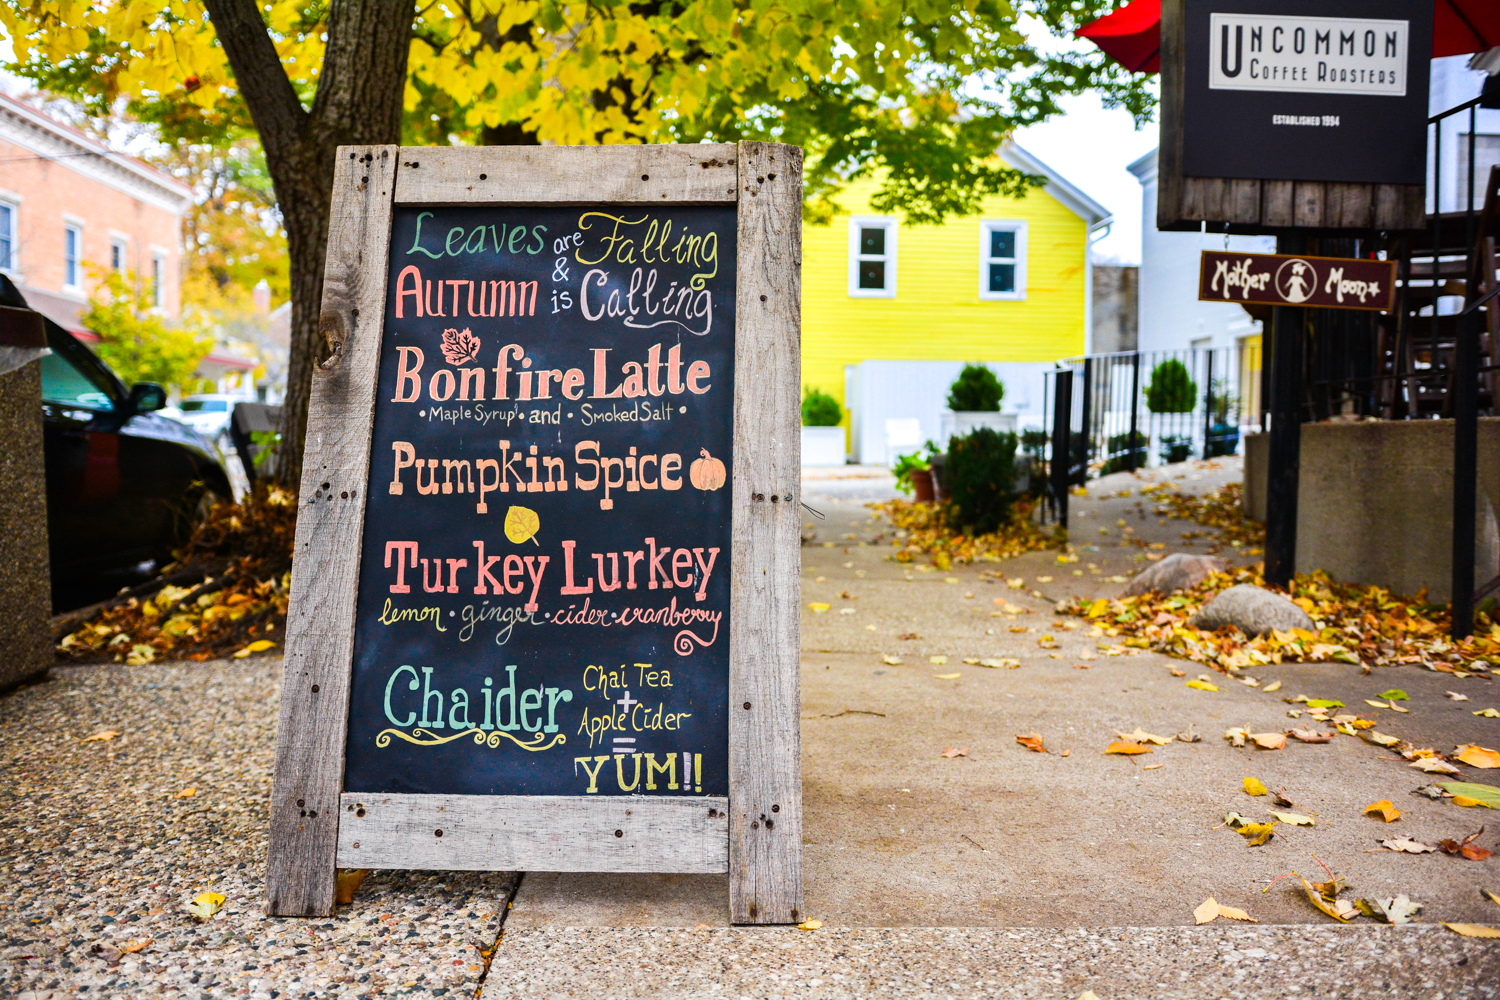 Leaves are Falling
& 
Autumn is Calling
Bonfire Latte
• Maple Syrup • and • Smoked Salt •
Pumpkin Spice
Turkey Lurkey
lemon • ginger • cider • cranberry
Chaider
Chai Tea
+
Apple Cider
=
YUM!!
UNCOMMON
COFFEE ROASTERS
ESTABLISHED 1994
Mother Moon